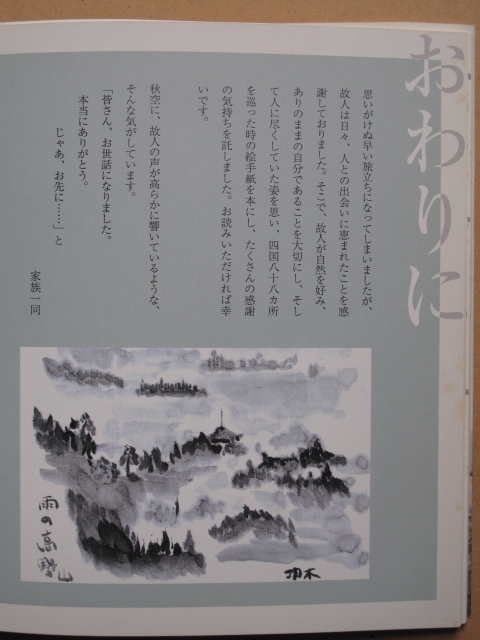 おわりに
思いがけぬ早い旅立ちになってしまいましたが、
故人は日々、人との出会いに恵まれたことを感
謝しておりました。そこで、故人が自然を好み、
ありのままの自分であることを大切にし、そし
て人に尽くしていた姿を思い、四国八十八カ所
を巡った時の絵手紙を本にし、たくさんの感謝
の気持ちを託しました。お読みいただければ幸
いです。
秋空に、故人の声が高らかに響いているような、
そんな気がしています。
「皆さん、お世話になりました。
本当にありがとう。
じゃあ、お先に……」と
家族一同
雨の高野山